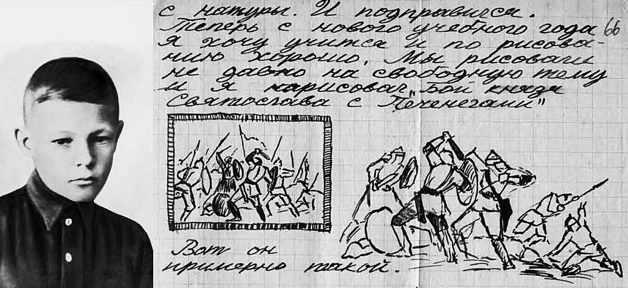 с натуры. И подправился.
Теперь с нового учебного года 66
я хочу учится и по рисова-
нию хорошо. Мы рисовали
не давно на свободную тему
и я нарисовал „Бой князя
Святослава с Печенегами"
Вот он
примерно такой.